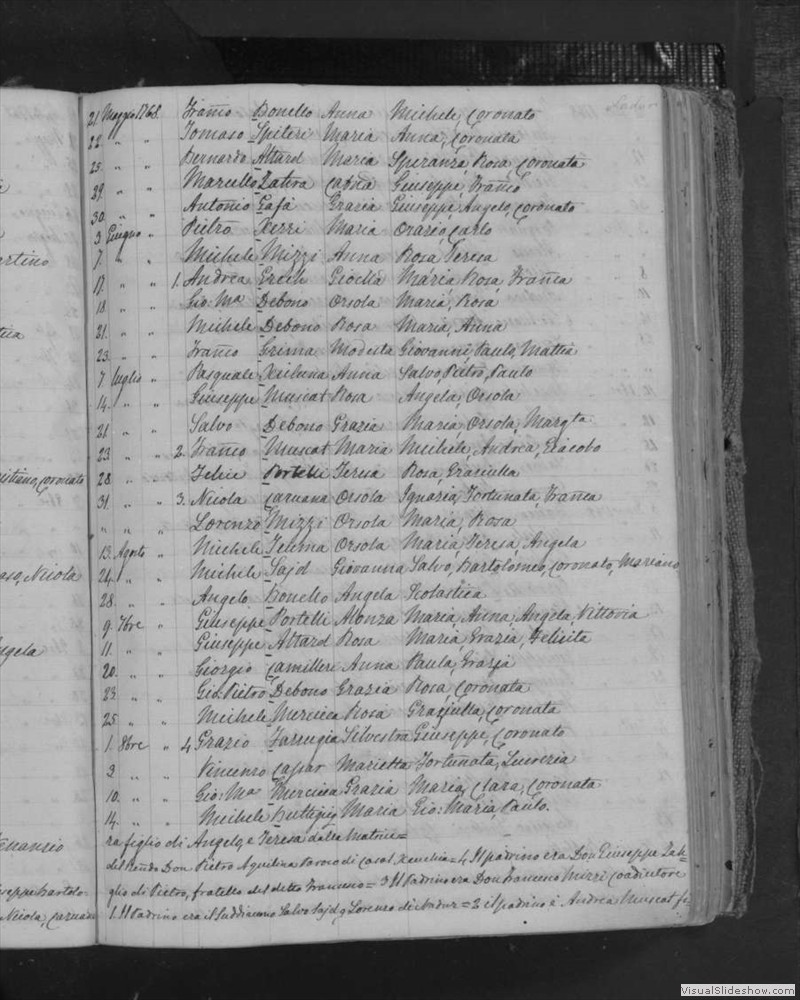 Nadur
21 Maggio 1768. Franco Bonello Anna Michele, Coronato
22. " " Tomaso Spiteri Maria Anna, Coronata
25. " " Bernardo Attard Maria Speranza, Rosa, Coronata
29. " " Marcello Zatira Catña Giuseppe, Franco
30. " " Antonio Gafà Grazia Giuseppe, Angelo, Coronato
3 Giugno " Pietro Xerri Maria Orazio, Carlo
7. " " Michele Mizzi Anna Rosa, Teresa
17. " " 1. Andrea Grech Gioella Maria, Rosa, Franca
18 " " Gio: Ma Debono Orsola Maria, Rosa
21. " " Michele Debono Rosa Maria, Anna
23. " " Franco Grima Modesta Giovanni, Paulo, Mattia
7 Luglio " Pasquale Xeibuna Anna Salvo, Pietro, Paulo
14. " " Giuseppe Muscat Rosa Angela, Orsola
21 " " Salvo Debono Grazia Maria, Orsola, Margta
23 " " 2. Franco Muscat Maria Michele, Andrea, Giacobo
28. " " Felice Portelli Teresa Rosa, Graziulla
31. " " 3. Nicola Caruana Orsola Ignazia, Fortunata, Franca
" " " Lorenzo Mizzi Orsola Maria, Rosa
13. Agosto " Michele Teuma Orsola Maria, Teresa, Angela
24. " " Michele Sajd Giovanna Salvo, Bartolomeo, Coronato, Mariano
28. " " Angelo Bonello Angela Scolastica
9. 7bre " Giuseppe Portelli Alonza Maria, Anna, Angela, Vittoria
11. " " Giuseppe Attard Rosa Maria, Grazia, Felicita
20. " " Giorgio Camilleri Anna Paula,
23. " " Gio: Pietro Debono Grazia Rosa, Coronata
25. " " Michele Mercieca Rosa Graziulla, Coronata
1. 8bre " 4 Grazio Farrugia Silvestra Giuseppe, Coronato
3 " " Vincenzo Cassar Marietta Fortunata, Lucrezia
10. " " Gio: Ma Mercieca Grazia Maria, Clara, Coronata
14. " " Michele Buttigieg Maria Gio: Maria, Paulo.
ra figlio di Angelo, e Teresa dalla Matrice=
del Rendo Don Pietro Aquilina Paroco di Casal Xeuchia= 4 Il padrino era Don Giuseppe Zah=
glio di Pietro, fratello del detto Franceso= 3 Il Padrino era Don Francesco Mizzi Coadiutore
1. Il Padrino era il Suddiacono Salvo Sajd q Lorenzo di Nadur= 2 il padrino è Andrea Muscat fi
ertino
istiano, Coronato
aso, Nicola
ngela
Venanzio
seppe, Bartolo-
Nicola, Caruana
VisualSlideshow.com